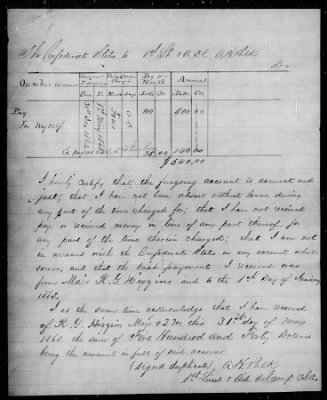 The Confederate States to 1st Lt & A.D.C. O. K. Peck
Dr.
On what account
Pay pr Month
Amount
From To Months days Dolls Cts Dolls Cts
Pay
For Myself 100 400 00
Co pay as A.D.C. 35.00 140.00
$540.00
I hereby certify that the foregoing account is accurate and
just; that I have not been absent without leave during
any part of the time charged for; that I have not received
pay, or received money in lieu of any part thereof, for
any part of the time therein charged; that I am not
in arrears with the Confederate States on any account what
soever, and that the last payment I received was
from Maj. R. G. Higgins and to the 1st Day of January
1862.
I at the same time acknowledge that I have received
of R. G. Higgins Maj. & Q.M. this 31st day of May
1862 the sum of Five Hundred and Forty Dollars
being the amount in full of said account.
(Signed duplicate) O. K. Peck
1st Lieut & Aid de Camp C.S.A.